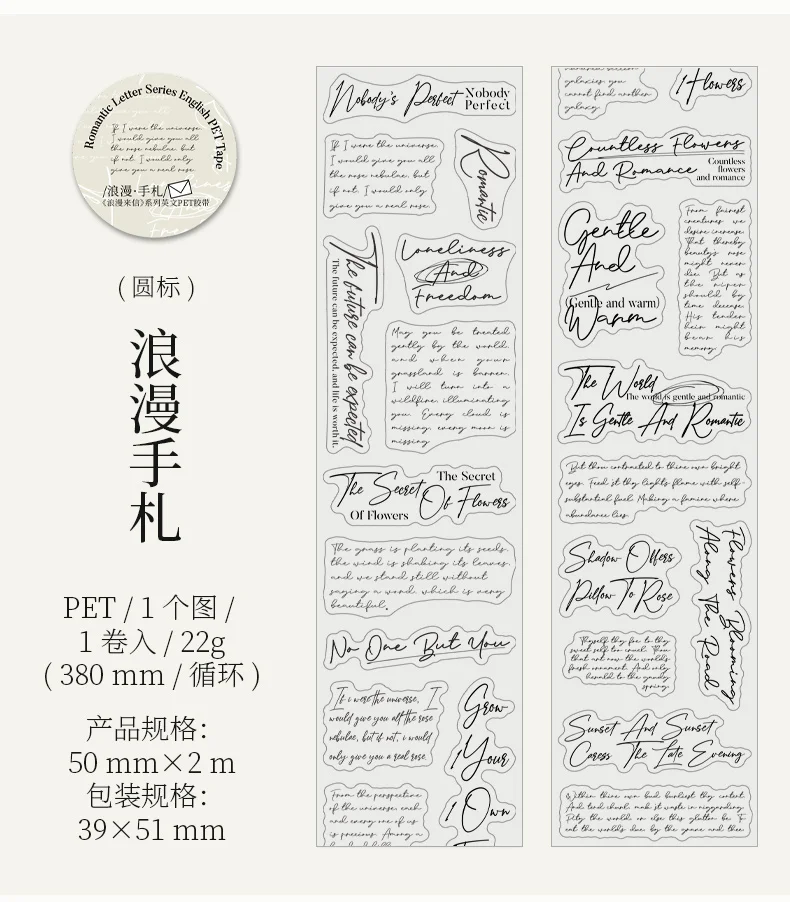 Romantic Letter Series English PET Tape
If I were the universe,
I would give you all
the rose nebulae, but
if not, I would only
give you a real rose.
/浪漫·手札/
《浪漫来信》系列英文PET胶带
(圆标)
浪漫手札
PET / 1 个图 /
1 卷入 / 22g
( 380 mm / 循环 )
产品规格:
50 mm×2 m
包装规格:
39×51 mm
Nobody's Perfect
Nobody
Perfect
If I were the universe,
I would give you all
the rose nebulae, but
if not, I would only
give you a real rose.
Romantic
The future can be expected
The future can be expected, and life is worth it.
Loneliness
And
Freedom
May you be treated
gently by the world,
and when your
grassland is barren,
I will turn into a
wildfire, illuminating
you. Every cloud is
missing, every moon is
missing
The Secret
Of Flowers
The Secret
Of Flowers
The grass is planting its seeds,
the wind is shaking its leaves,
and we stand still without
saying a word, which is very
beautiful.
No One But You
If i were the universe, I
would give you all the rose
nebulae, but if not, i would
only give you a real rose.
Grow
Your
Own
From the perspective
of the universe, each
and every one of us
is precious. Among a
galaxies, you
cannot find another
galaxy.
Flowers
Countless Flowers
And Romance
Countless
flowers
and romance
Gentle
And
(Gentle and warm)
Warm
From fairest
creatures we
desire increase,
That thereby
beautys rose
might never
die, But as
the riper
should by
time decease,
His tender
heir might
bear his
memory:
The World
The world is gentle and romantic
Is Gentle And Romantic
But thou contracted to thine own bright
eyes, Feed st thy lights flame with self-
substantial fuel, Making a famine where
abundance lies,
Shadow Offers
Pillow To Rose
Flowers Blooming
Along The Road
Thyself thy foe, to thy
sweet self too cruel. Thou
that art now the worlds
fresh ornament, And only
herald to the gaudy
spring,
Sunset And Sunset
Caress The Late Evening
Within thine own bud buriest thy content,
And tend churl mak st waste in niggarding.
Pity the world, or else this glutton be, T
eat the worlds due, by the grave and thee